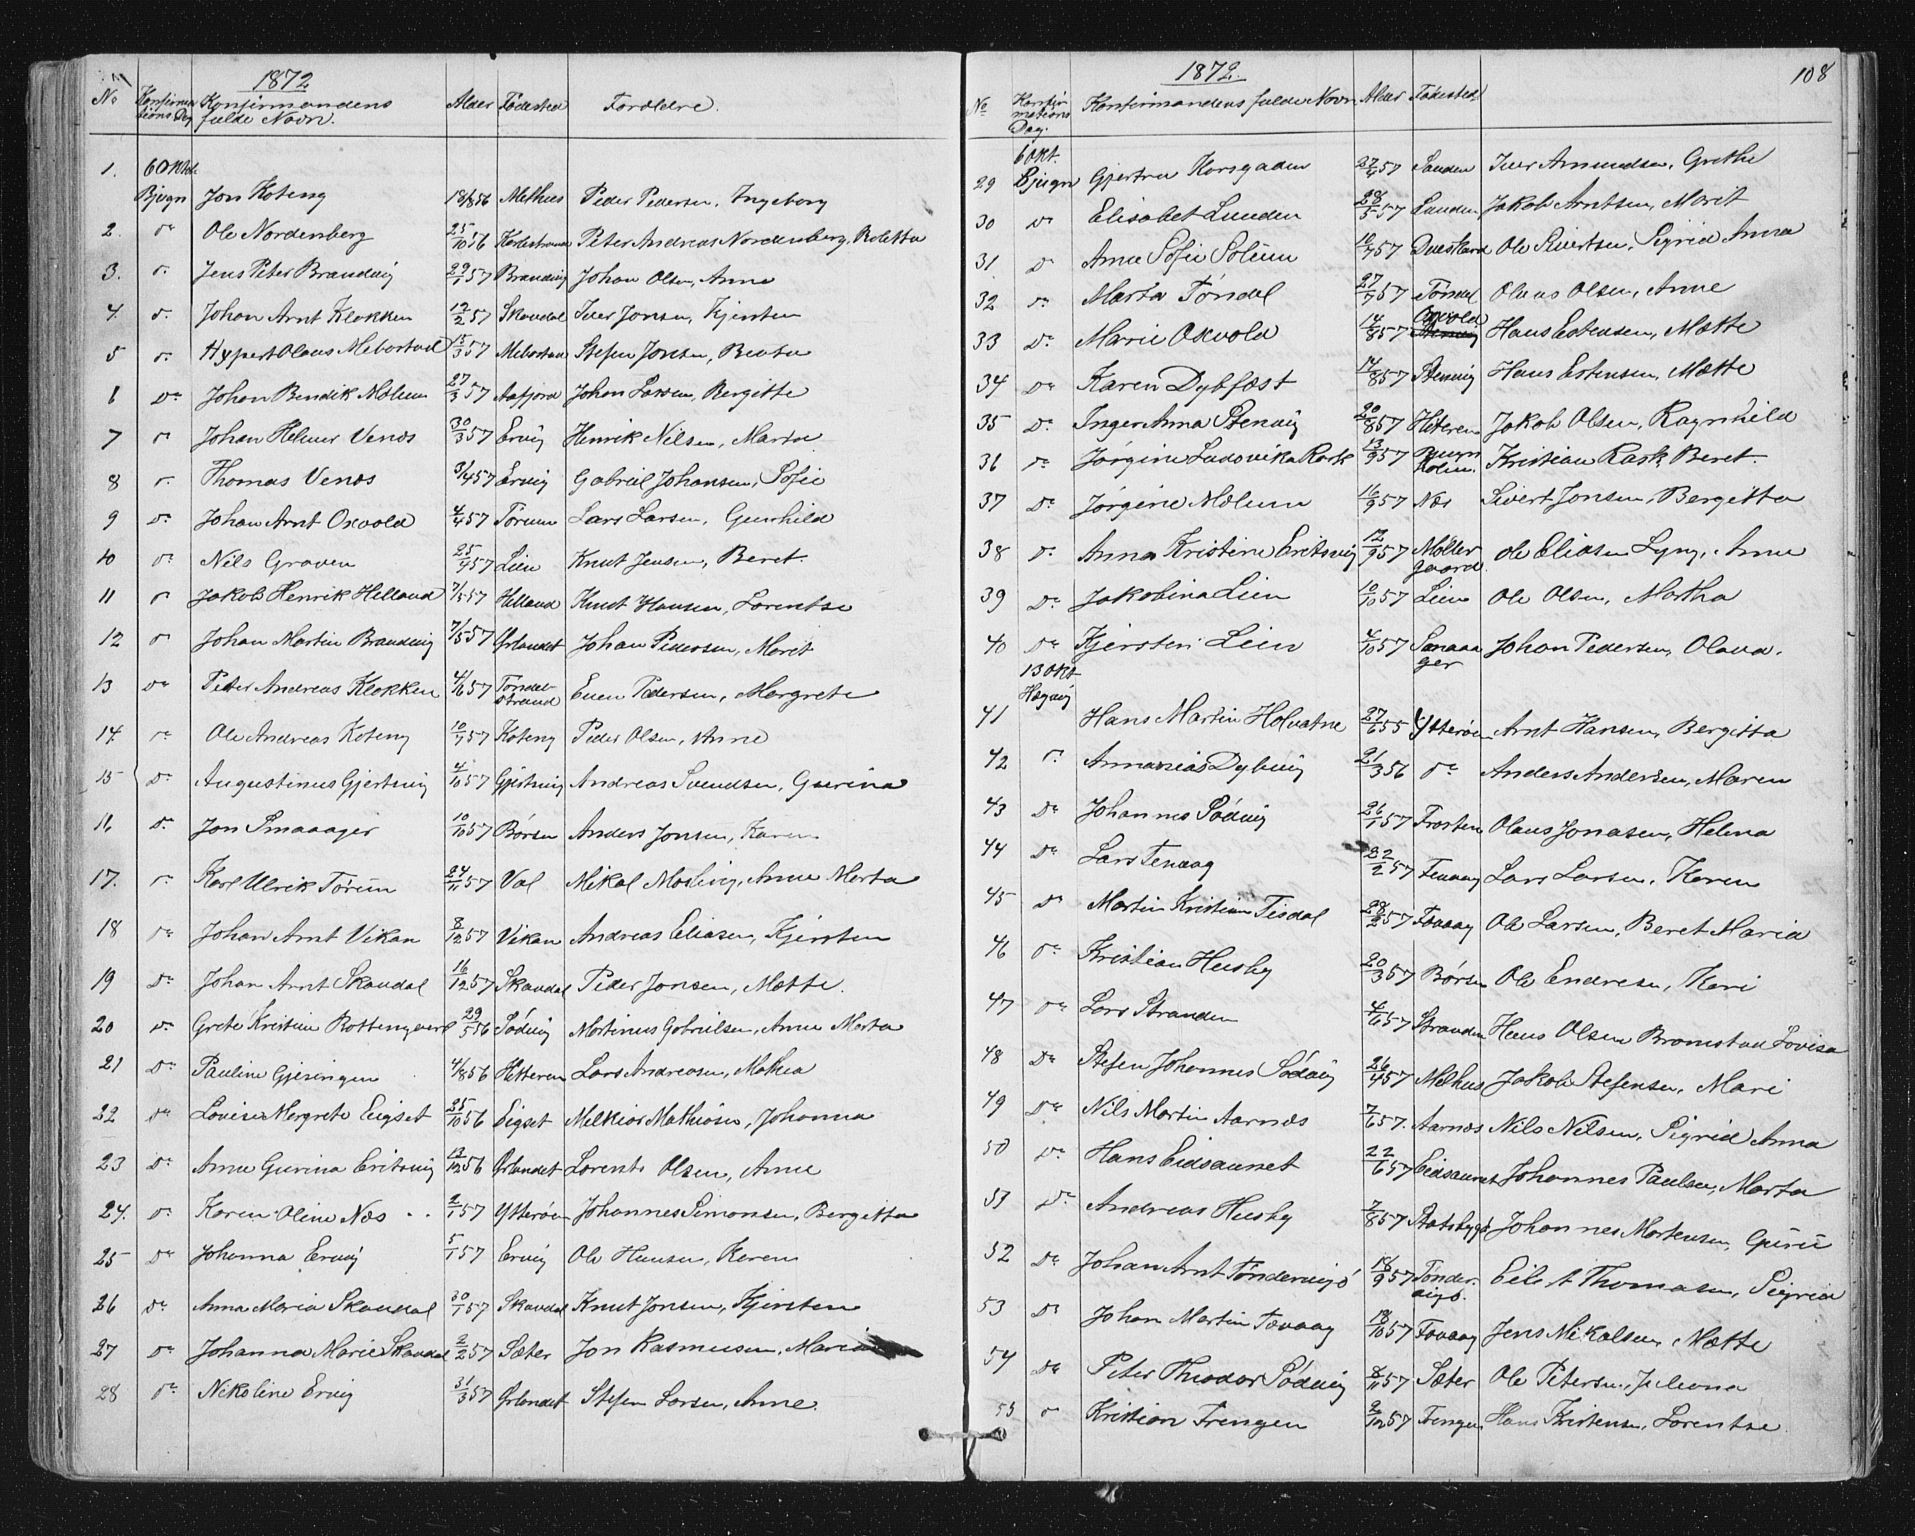 1872
No Konfirmations Dag Konfirmandens fulde Navn. Alder Fødested Forældre.
1. 6 Oktb Bjugn Jon Koteng 18/8 56 Melhus Peder Pedersen, Ingeborg
2. do Ole Nordenberg 25/10 56 Peter Andreas Nordenberg, Roletta
3. do Jens Peter Brandvig 29/1 57 Brandvig Johan Olsen, Anne
4. do Johan Arnt Klakken 12/2 57 Skavdal Iver Jonsen, Kjersten
5 do Hypert Olaus Mebostad 13/3 57 Mebostad Stefen Jonsen, Beata
6 Do Johan Bendik Mælum 27/3 57 Aafjord Johan Larsen, Bergitte
7 do Johan Helmer Venes 30/3 57 Ervig Henrik Nilsen, Marta
8 do Thomas Venes 3/4 57 Ervig Gabriel Johansen, Sofie
9 do Johan Arnt Oxvold 4/4 57 Tørum Lars Larsen, Gunhild
10 do Nils Graven 25/4 57 Lien Knut Jensen, Beret.
11 do Jakob Henrik Helland 7/5 57 Helland Knut Hansen, Lorentse
12 do Johan Martin Brandvig 7/5 57 Ørlandet Johan Pedersen, Marit
13 do Peter Andreas Klakken 4/6 57 Tøndelstrand Even Pedersen, Margrete
14. do Ole Andreas Koteng 10/7 57 Koteng Peder Olsen, Anne
15 Do Augustinus Gjertsvig 4/10 57 Gjertsvig Andreas Svendsen, Gurina
16 Do Jon Smaaager 10/10 57 Børsen Anders Jonsen, Karen
17. do Karl Ulrik Tørum 24/11 57 Val Mikal Mosling, Anne Marta
18 do Johan Arnt Vikan 8/12 57 Vikan Andreas Eliasen, Kjersten
19 Do Johan Arnt Skavdal 16/12 57 Skavdal Peder Jonsen, Mætte.
20 do Grete Kristine Rottengaard 29/5 56 Sødvig Martinus Gabrielsen, Anne Marta
21 Do Pauline Gjesingen 4/8 56 Hitteren Lars Andreasen, Mathea
22 do Lovise Margrete Eigset 25/10 56 Eigset Melkior Mathiasen, Johanna
23 Do Anne Gurina Eritsvig 13/12 56 Ørlandet Lorents Olsen, Anne
24. do Karen Oline Næs 2/1 57 Ytterøen Johannes Simonsen, Bergitta
25 Do Johanna Ervig 5/1 57 Ervig Ole Hansen, Karen
26 Do Anna Maria Skavdal 30/1 57 Skavdal Knut Jonsen, Kjersten
27 do Johanna Marie Skavdal 2/2 57 Sæter Jon Rasmussen, Maria
28 do Nikoline Ervig 31/3 57 Ørlandet Stefen Larsen, Anne
1872. 108
No Konfirmations Dag. Konfirmandens fulde Navn Alder Fødested
29 6 Okt. Bjugn Gjertru Korsgaden 27/4 57 Sanden Iver Amundsen, Grethe
30 do Elisabet Lunden 28/5 57 Lunden Jakob Arntsen, Marit
31 do Anne Sofie Solem 10/7 57 Dueskard Ole Sivertsen, Sigrid Anna
32 do Marta Tøndel 27/7 57 Tøndel Olaus Olsen, Anne
33 Do Marie Oxvold 14/8 57 Oxvold Hans Estensen, Mætte
34 Do Karen Dybfæst 14/8 57 Stenvig Hans Estensen, Mætte
35 Do Inger Anna Stenvig 20/8 57 Hiteren Jakob Olsen, Ragnhild
36 do Jørgine Ludovika Rask 13/9 57 Kristian Rask, Beret.
37 Do Jørgine Mælum 16/9 57 Næs Sivert Jonsen, Bergitta
38 do Anna Kristine Eritsvig 12/9 57 Møllergaard Ole Eliasen Lyng, Anne
39 Do Jakobina Lien 10/10 57 Lien Ole Olsen, Martha
40 Do Kjersten Lien 4/10 57 Smaaager Johan Pedersen, Olava.
41 13 Okt Hegvig Hans Martin Holvatne 27/6 55 Ytterøen Arnt Hansen, Bergitta
42 do Annanias Dybvig 21/3 56 do Anders Andersen, Maren
43 Do Johannes Sødvig 26/1 57 Frosten Olaus Jonasen, Helena
44 Do Lars Tevaag 22/2 57 Tevaag Lars Larsen, Karen
45 Do Martin Kristian Tisdal 28/2 57 Tevaag Ole Larsen, Beret Maria
46 do Kristian Husby 20/3 57 Børsen Ole Endresen, Kari
47 do Lars Stranden 4/6 57 Stranden Hans Olsen Bromstad Lovisa
48 Do Stefen Johannes Sødvig 26/4 57 Melhus Jakob Stefensen, Mari
49 Do Nils Martin Aarnes 7/6 57. Aarnæs Nils Nilsen, Sigrid Anna
50 do Hans Eidsaunet 22/6 57 Eidsaunet Johannes Paulsen, Marta
51 Do Andreas Husby 7/8 57 Statsbygd Johannes Mortensen, Guru
52 Do Johan Arnt Tøndervigø 16/9 57 Tøndervigø. Eilert Thomasen, Sigrid
53 Do Johan Martin Tevaag 18/10 57 Tevaag Jens Mikalsen, Mætte
54 Do Peter Theodor Sødvig 8/11 57 Sæter Ole Petersen, Juliana
55 do Kristian Frengen 2/12 57 Frengen Hans Kristensen, Lorentse